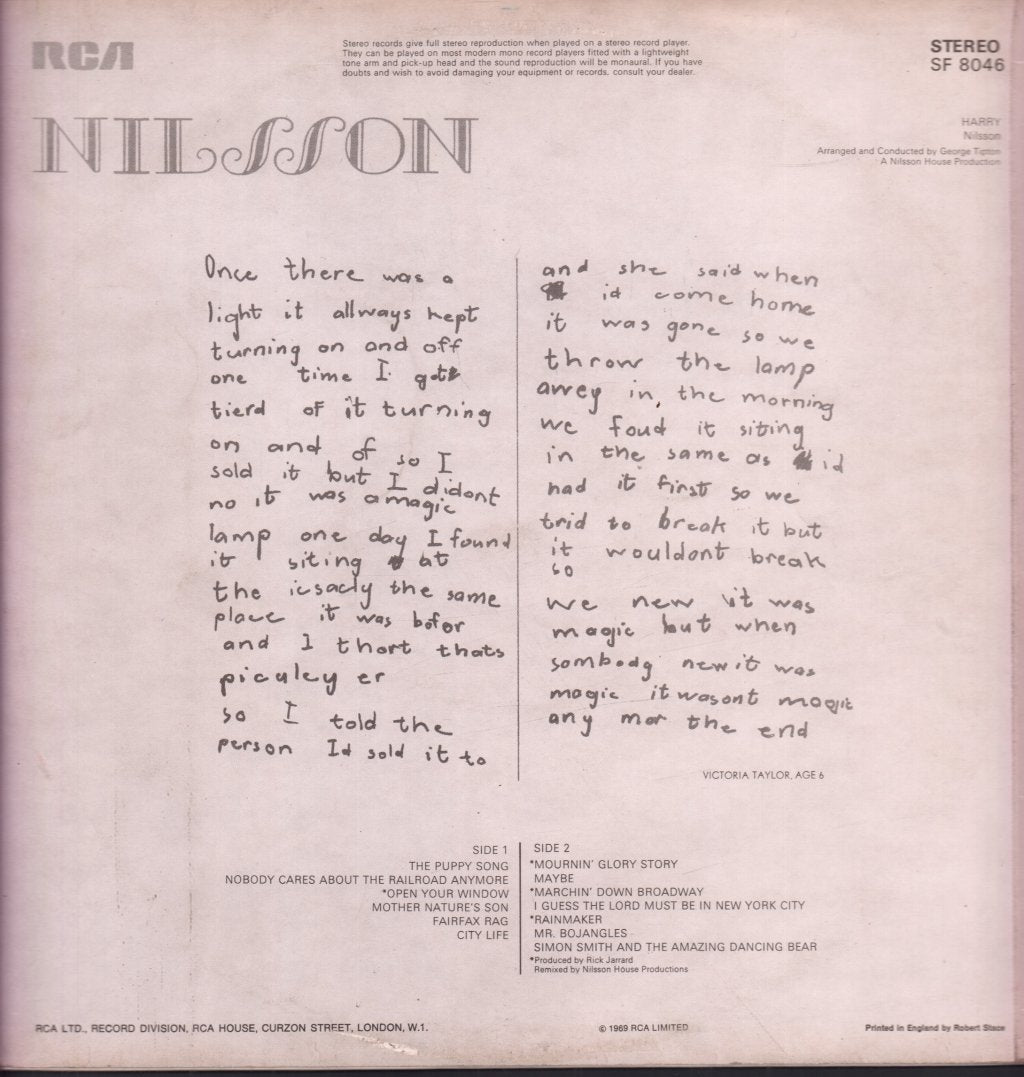 RCA
Stereo records give full stereo reproduction when played on a stereo record player.
They can be played on most modern mono record players fitted with a lightweight
tone arm and pick-up head and the sound reproduction will be monaural. If you have
doubts and wish to avoid damaging your equipment or records, consult your dealer.
STEREO
SF 8046
NILSSON
HARRY
Nilsson
Arranged and Conducted by George Tipton
A Nilsson House Production
Once there was a
light it allways kept
turning on and off
one time I got
tierd of it turning
on and of so I
sold it but I didont
no it was a magic
lamp one day I found
it siting at
the icsacly the same
place it was befor
and I thort thats
piculey er
so I told the
person Id sold it to
and she said when
id come home
it was gone so we
throw the lamp
awey in, the morning
we foud it siting
in the same as id
had it first so we
trid to break it but
it wouldont break
so
we new it was
magic but when
sombody new it was
magic it wasont magic
any mor the end
VICTORIA TAYLOR, AGE 6
SIDE 1
THE PUPPY SONG
NOBODY CARES ABOUT THE RAILROAD ANYMORE
*OPEN YOUR WINDOW
MOTHER NATURE'S SON
FAIRFAX RAG
CITY LIFE
SIDE 2
*MOURNIN' GLORY STORY
MAYBE
*MARCHIN' DOWN BROADWAY
I GUESS THE LORD MUST BE IN NEW YORK CITY
*RAINMAKER
MR. BOJANGLES
SIMON SMITH AND THE AMAZING DANCING BEAR
*Produced by Rick Jarrard
Remixed by Nilsson House Productions
RCA LTD., RECORD DIVISION, RCA HOUSE, CURZON STREET, LONDON, W.1.
© 1969 RCA LIMITED
Printed in England by Robert Stace